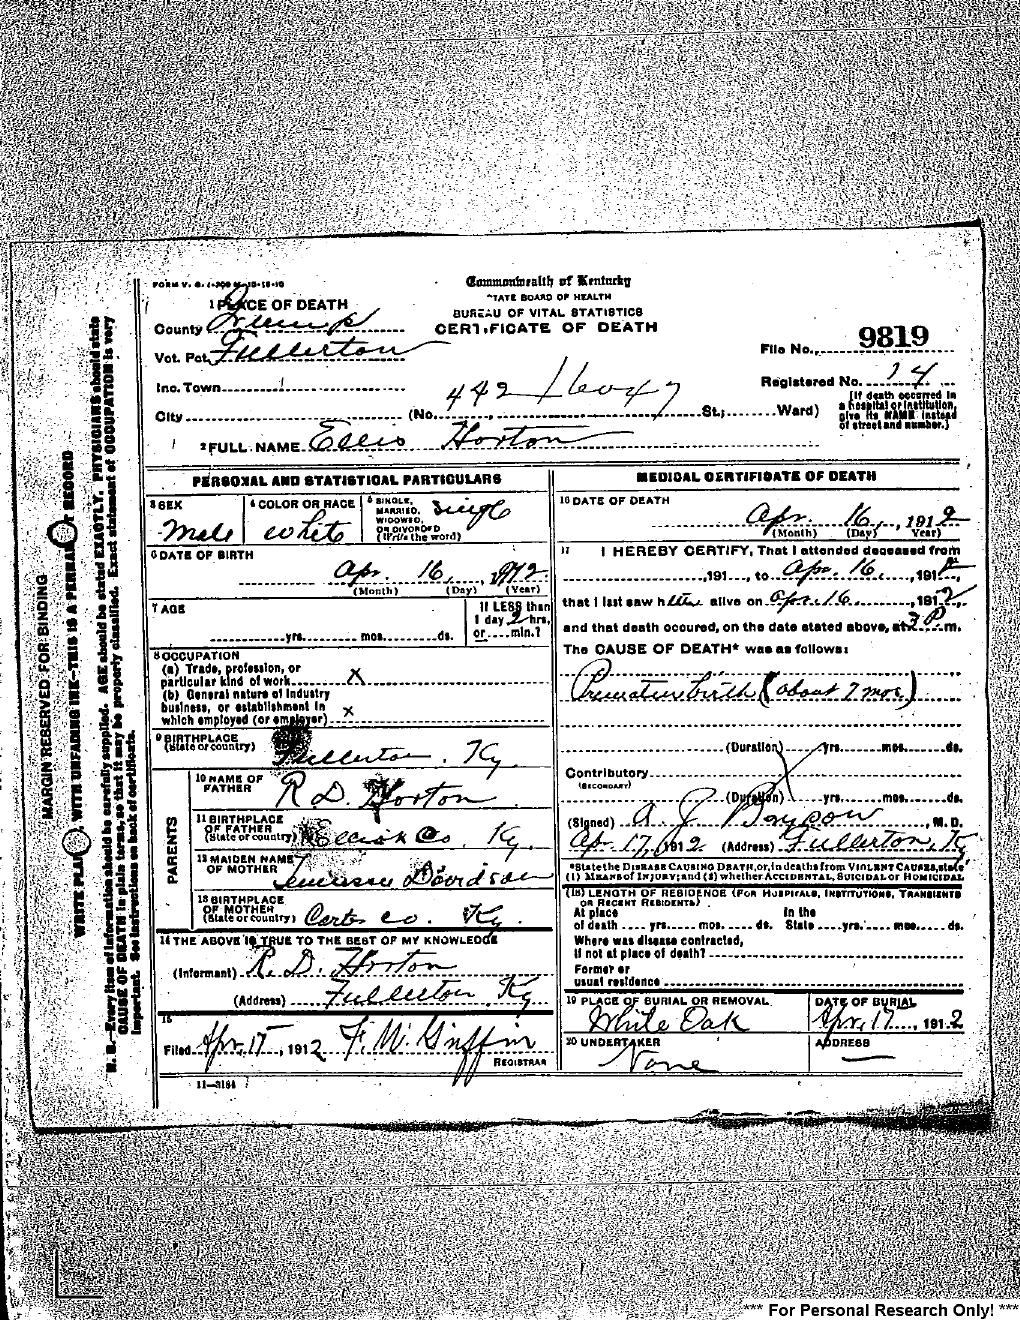 FORM V. S. 10-10-10
Commonwealth of Kentucky
STATE BOARD OF HEALTH
BUREAU OF VITAL STATISTICS
CERTIFICATE OF DEATH
1 PLACE OF DEATH
County Greenup
Vot. Pct. Fullerton
Inc. Town
City (No. 442 St; Ward)
File No. 9819
Registered No. 14
(If death occurred in
a hospital or institution,
give its NAME instead
of street and number.)
2 FULL NAME Ellis Horton
PERSONAL AND STATISTICAL PARTICULARS
3 SEX
Male
4 COLOR OR RACE
white
5 SINGLE,
MARRIED,
WIDOWED,
OR DIVORCED
(Write the word)
single
6 DATE OF BIRTH
Apr. 16, 1912
(Month) (Day) (Year)
7 AGE
yrs. mos. ds.
If LESS than
1 day 2 hrs,
or min.?
8 OCCUPATION
(a) Trade, profession, or
particular kind of work X
(b) General nature of Industry
business, or establishment in
which employed (or employer) X
9 BIRTHPLACE
(State or country) Fullerton, Ky
PARENTS
10 NAME OF
FATHER R. D. Horton
11 BIRTHPLACE
OF FATHER
(State or country) Elliott Co. Ky.
12 MAIDEN NAME
OF MOTHER Tennessee Davidson
13 BIRTHPLACE
OF MOTHER
(State or country) Carter Co. Ky.
14 THE ABOVE IS TRUE TO THE BEST OF MY KNOWLEDGE
(Informant) R. D. Horton
(Address) Fullerton, Ky
15
Filed Apr. 17, 1912 F. M. Griffin
REGISTRAR
11—3184
MEDICAL CERTIFICATE OF DEATH
16 DATE OF DEATH
Apr. 16, 1912
(Month) (Day) (Year)
17 I HEREBY CERTIFY, That I attended deceased from
, 191 , to Apr. 16, 191
that I last saw h alive on Apr. 16, 1912,
and that death occured, on the date stated above, at 3 P. m.
The CAUSE OF DEATH* was as follows:
Premature birth (about 7 mos.)
(Duration) yrs. mos. ds.
Contributory
(SECONDARY)
(Duration) yrs. mos. ds.
(Signed) A. J. , M. D.
Apr. 17, 1912 (Address) Fullerton, Ky
*State the DISEASE CAUSING DEATH, or, in deaths from VIOLENT CAUSES, state
(1) MEANS OF INJURY; and (2) whether ACCIDENTAL, SUICIDAL OR HOMICIDAL
(18) LENGTH OF RESIDENCE (FOR HOSPITALS, INSTITUTIONS, TRANSIENTS
OR RECENT RESIDENTS)
At place In the
of death yrs. mos. ds. State yrs. mos. ds.
Where was disease contracted,
If not at place of death?
Former or
usual residence
19 PLACE OF BURIAL OR REMOVAL
White Oak
DATE OF BURIAL
Apr. 17, 1912
20 UNDERTAKER
None
ADDRESS
MARGIN RESERVED FOR BINDING
WRITE PLAINLY, WITH UNFADING INK—THIS IS A PERMANENT RECORD
N. B.—Every item of information should be carefully supplied. AGE should be stated EXACTLY. PHYSICIANS should state
CAUSE OF DEATH in plain terms, so that it may be properly classified. Exact statement of OCCUPATION is very
important. See instructions on back of certificate.
*** For Personal Research Only! ***